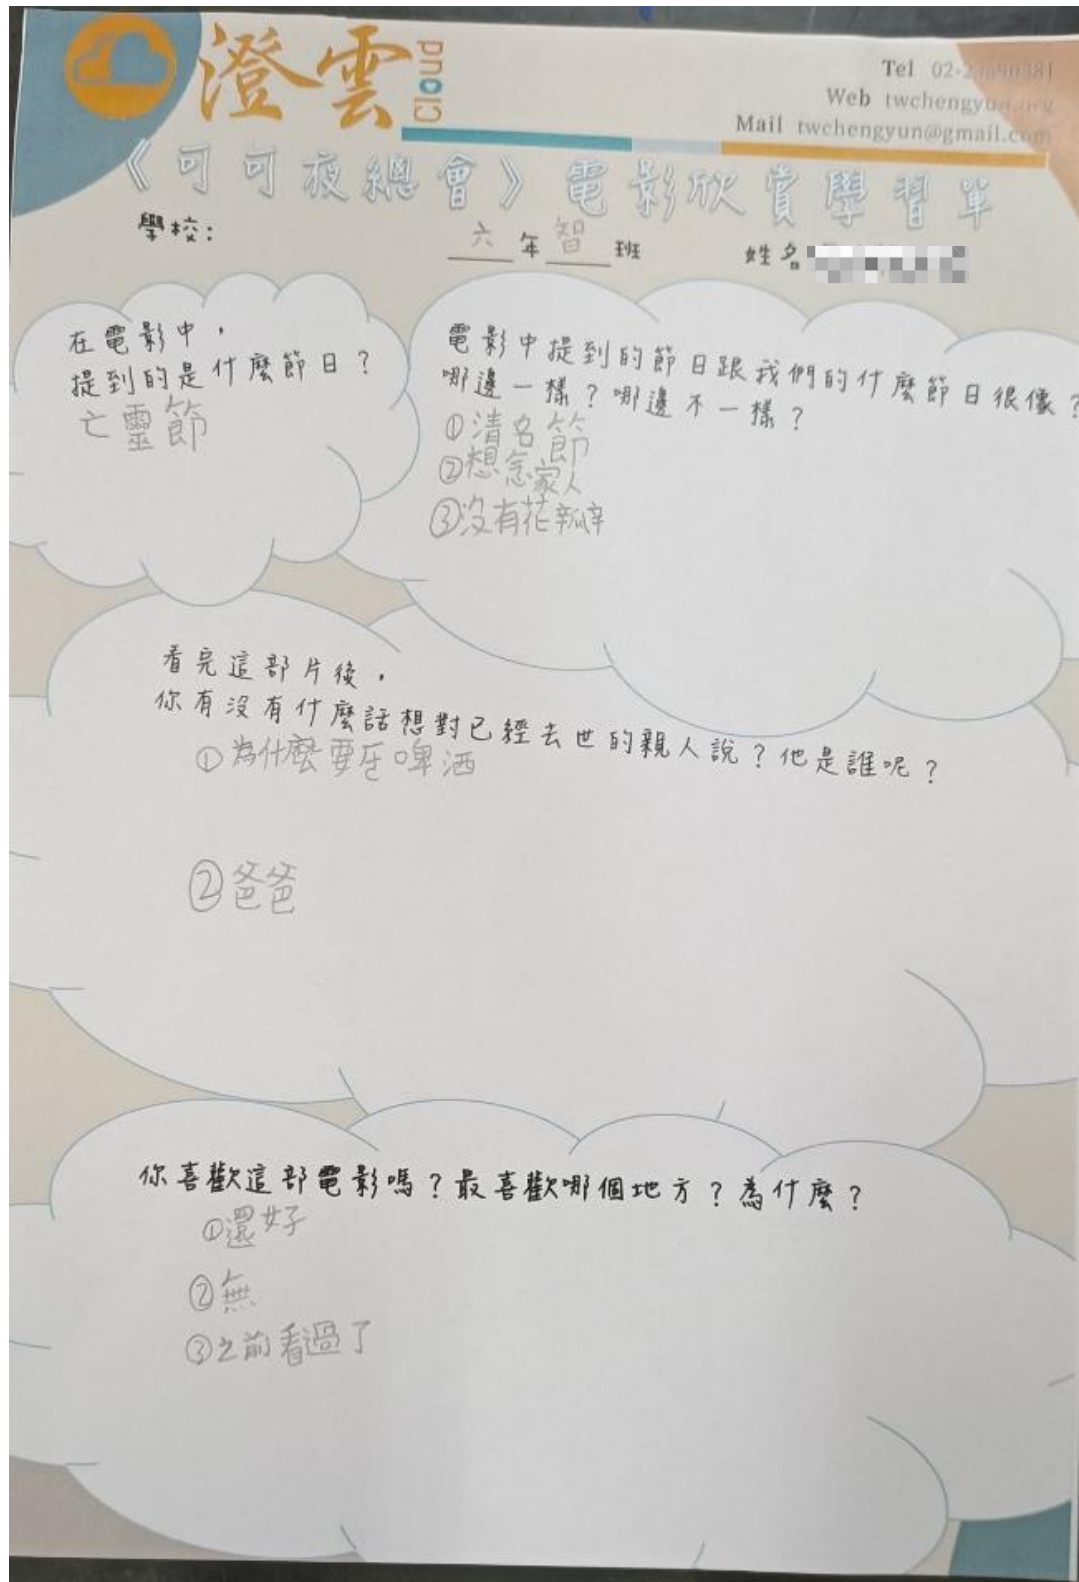 澄雲
cloud
Tel 02-23690381
Web twchengyun.org
Mail twchengyun@gmail.com
《可可夜總會》電影欣賞學習單
學校：
六年智班
姓名
在電影中，
提到的是什麼節日？
亡靈節
電影中提到的節日跟我們的什麼節日很像？
哪邊一樣？哪邊不一樣？
①清名節
②想念家人
③沒有花瓣
看完這部片後，
你有沒有什麼話想對已經去世的親人說？他是誰呢？
①為什麼要 啤酒
②爸爸
你喜歡這部電影嗎？最喜歡哪個地方？為什麼？
①還好
②無
③之前看過了